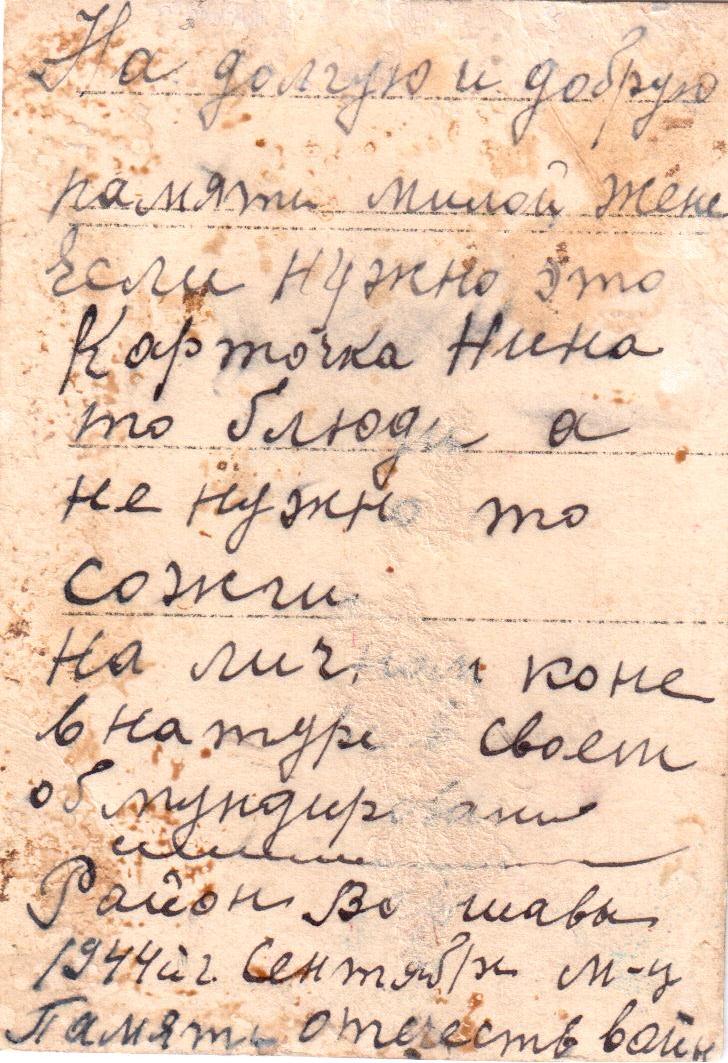 На долгую и добрую
память милой жене
Если нужно это
Карточка Нина
то блюди а
не нужно то
сожги
На личном коне
в натуре в своем
обмундировании
Район Варшавы
1944й г. Сентябрь м-ц
Память отечеств войны